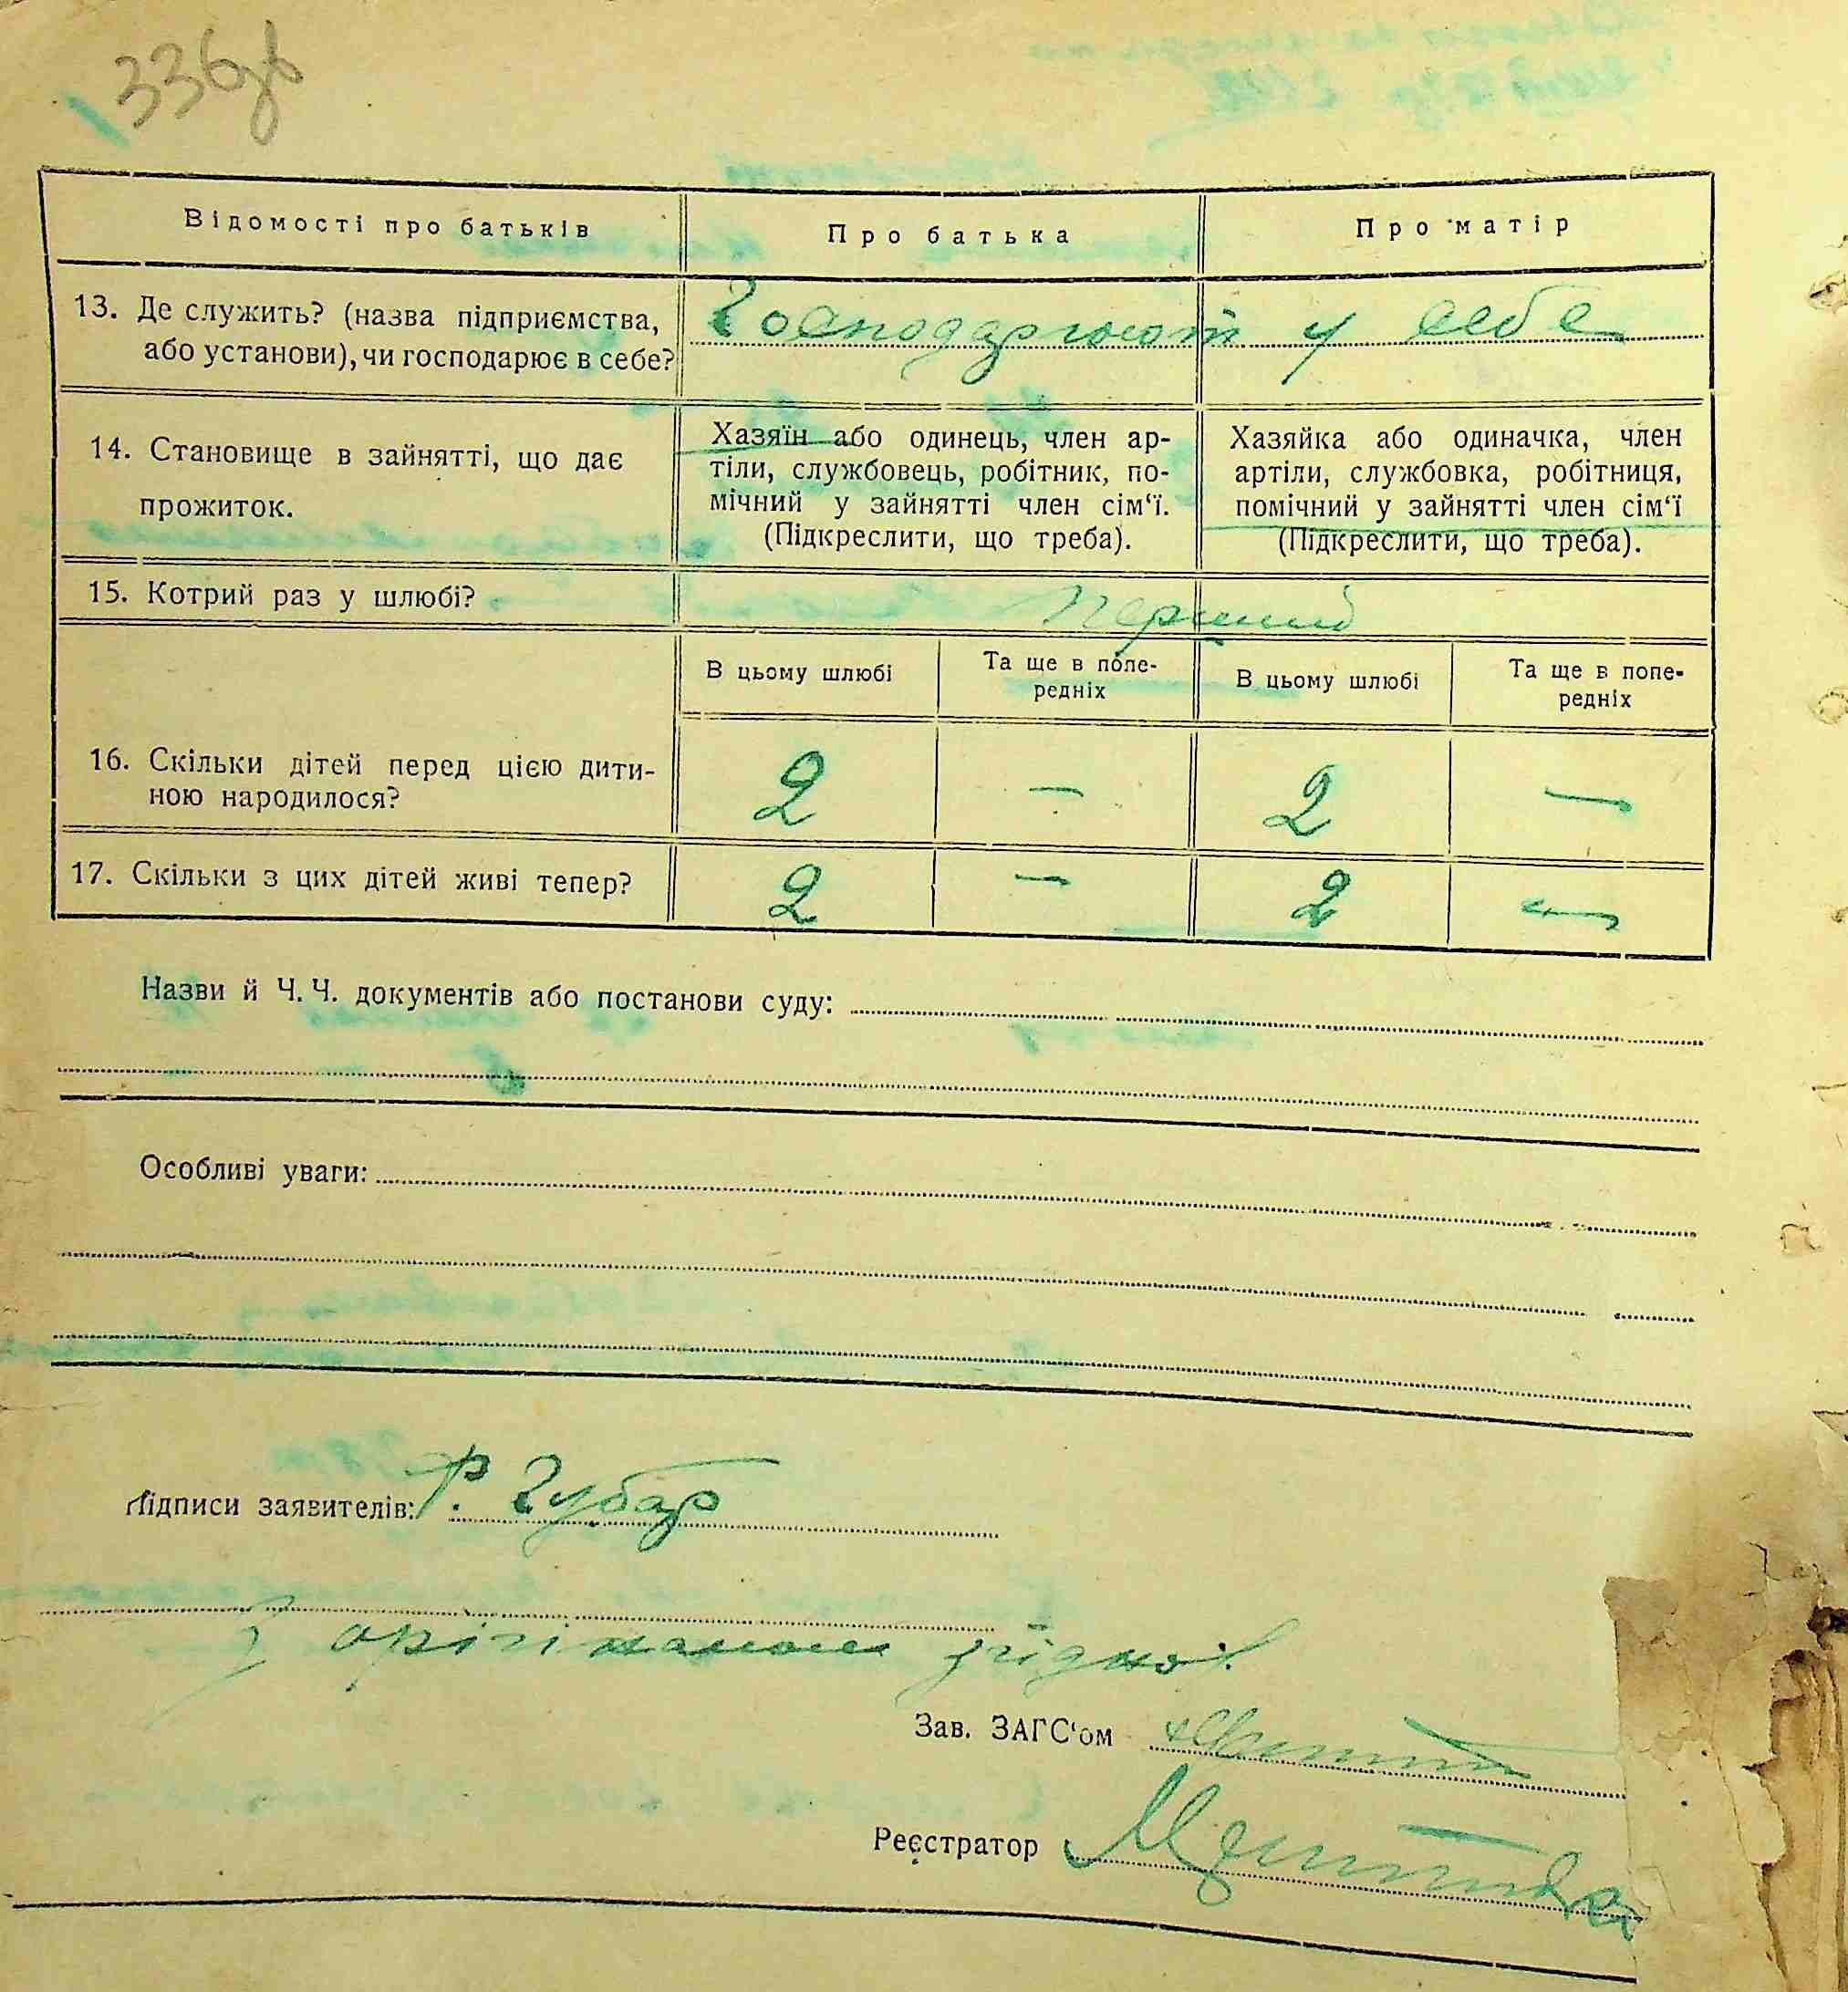 336зв
Відомості про батьків
Про батька
Про матір
13. Де служить? (назва підприємства,
або установи), чи господарює в себе?
Господарюют у себе
14. Становище в зайнятті, що дає
прожиток.
Хазяїн або одинець, член ар-
тіли, службовець, робітник, по-
мічний у зайнятті член сім‘ї.
(Підкреслити, що треба).
Хазяйка або одиначка, член
артіли, службовка, робітниця,
помічний у зайнятті член сім‘ї
(Підкреслити, що треба).
15. Котрий раз у шлюбі?
Перший
В цьому шлюбі
Та ще в попе-
редніх
В цьому шлюбі
Та ще в попе-
редніх
16. Скільки дітей перед цією дити-
ною народилося?
2 — 2 —
17. Скільки з цих дітей живі тепер?
2 — 2 —
Назви й Ч. Ч. документів або постанови суду:
Особливі уваги:
Підписи заявителів: Р. Губар
З оригіналом згідно:
Зав. ЗАГС‘ом
Реєстратор